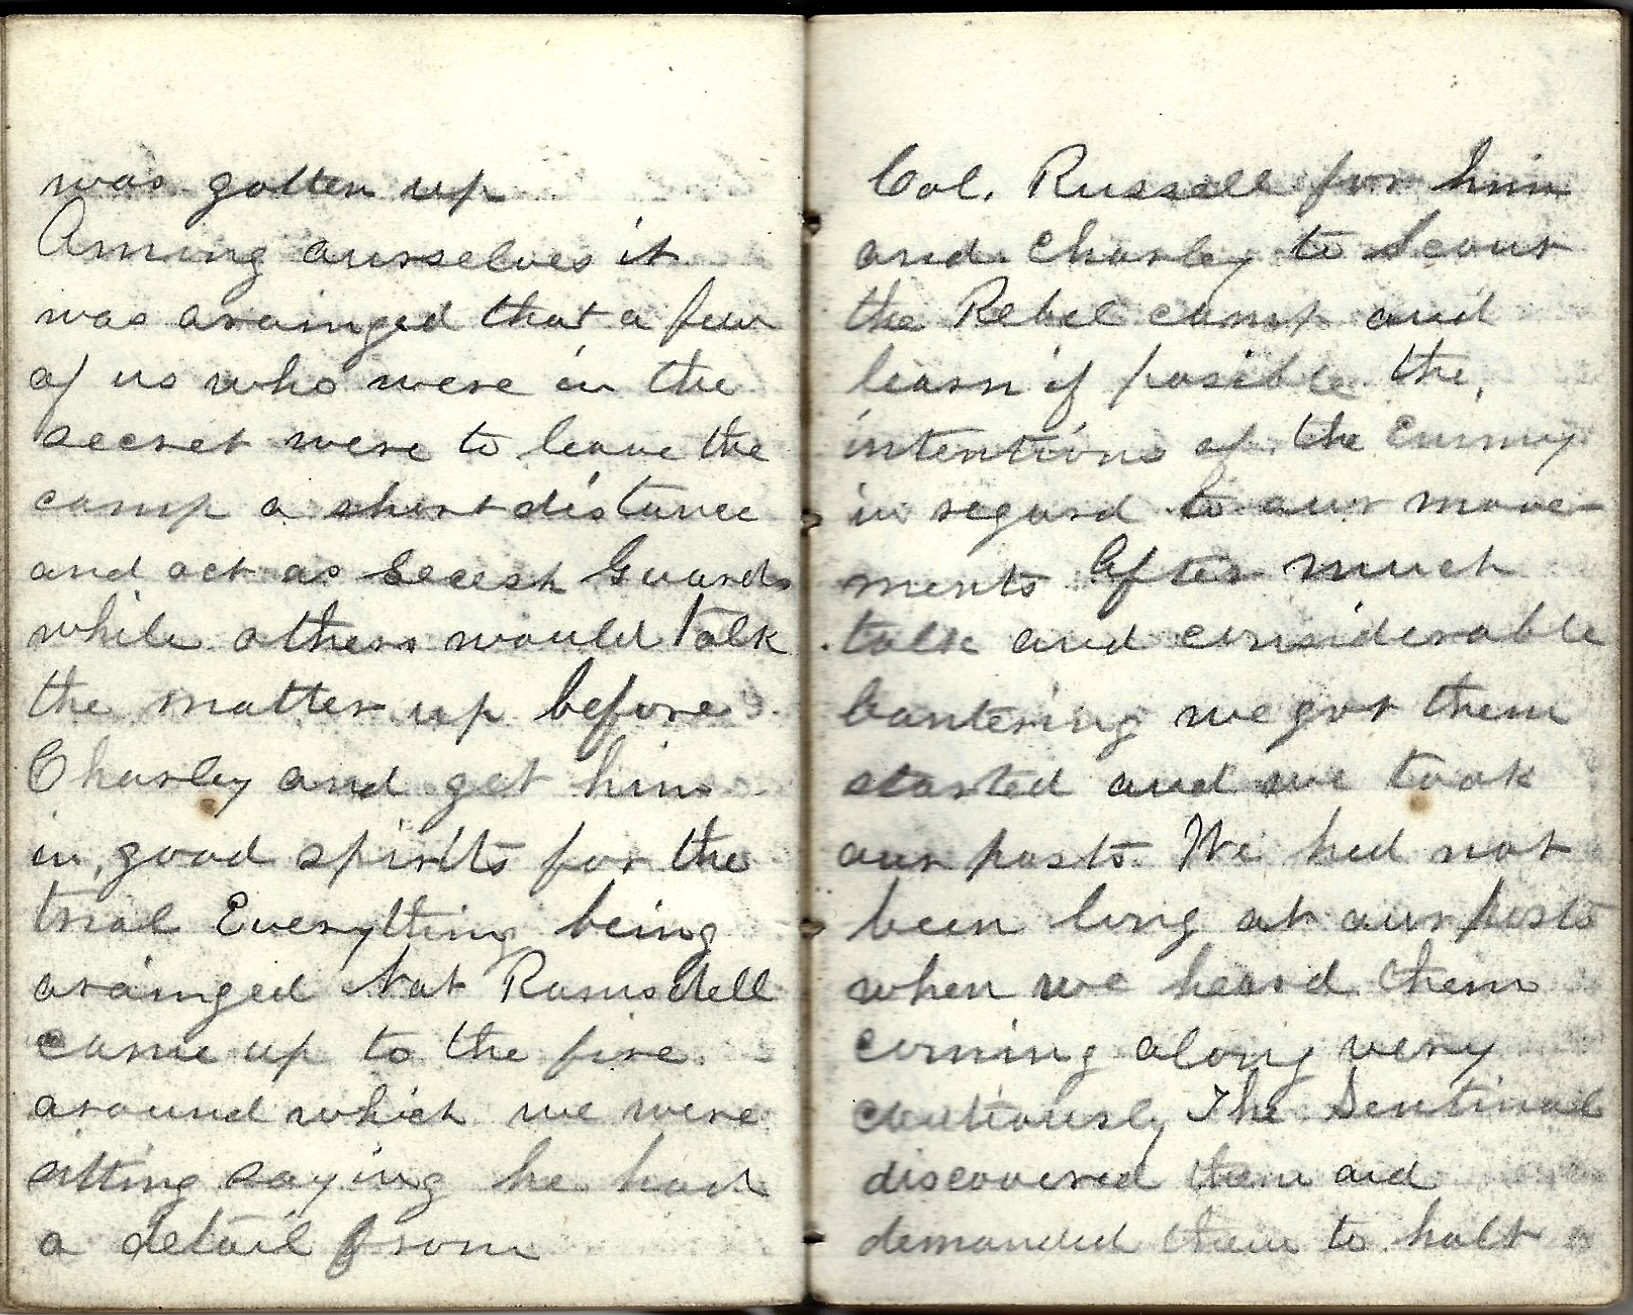 was gotten up
Among ourselves it
was arainged that a few
of us who were in the
secret were to leave the
camp a short distance
and act as Secesh Guards
while others would talk
the matter up before
Charley and get him
in good spirits for the
trial Everything being
arainged Nat Ramsdell
came up to the fire
around which we were
sitting saying he had
a detail from
Col. Russell for him
and Charley to Scout
the Rebel camp and
learn if posible the
intentions of the Enimy
in regard to our move-
ments After much
talk and considerable
bantering we got them
started and we took
our posts. We had not
been long at our posts
when we heard them
coming along very
coutiously The Sentinal
discovered them and
demanded them to halt